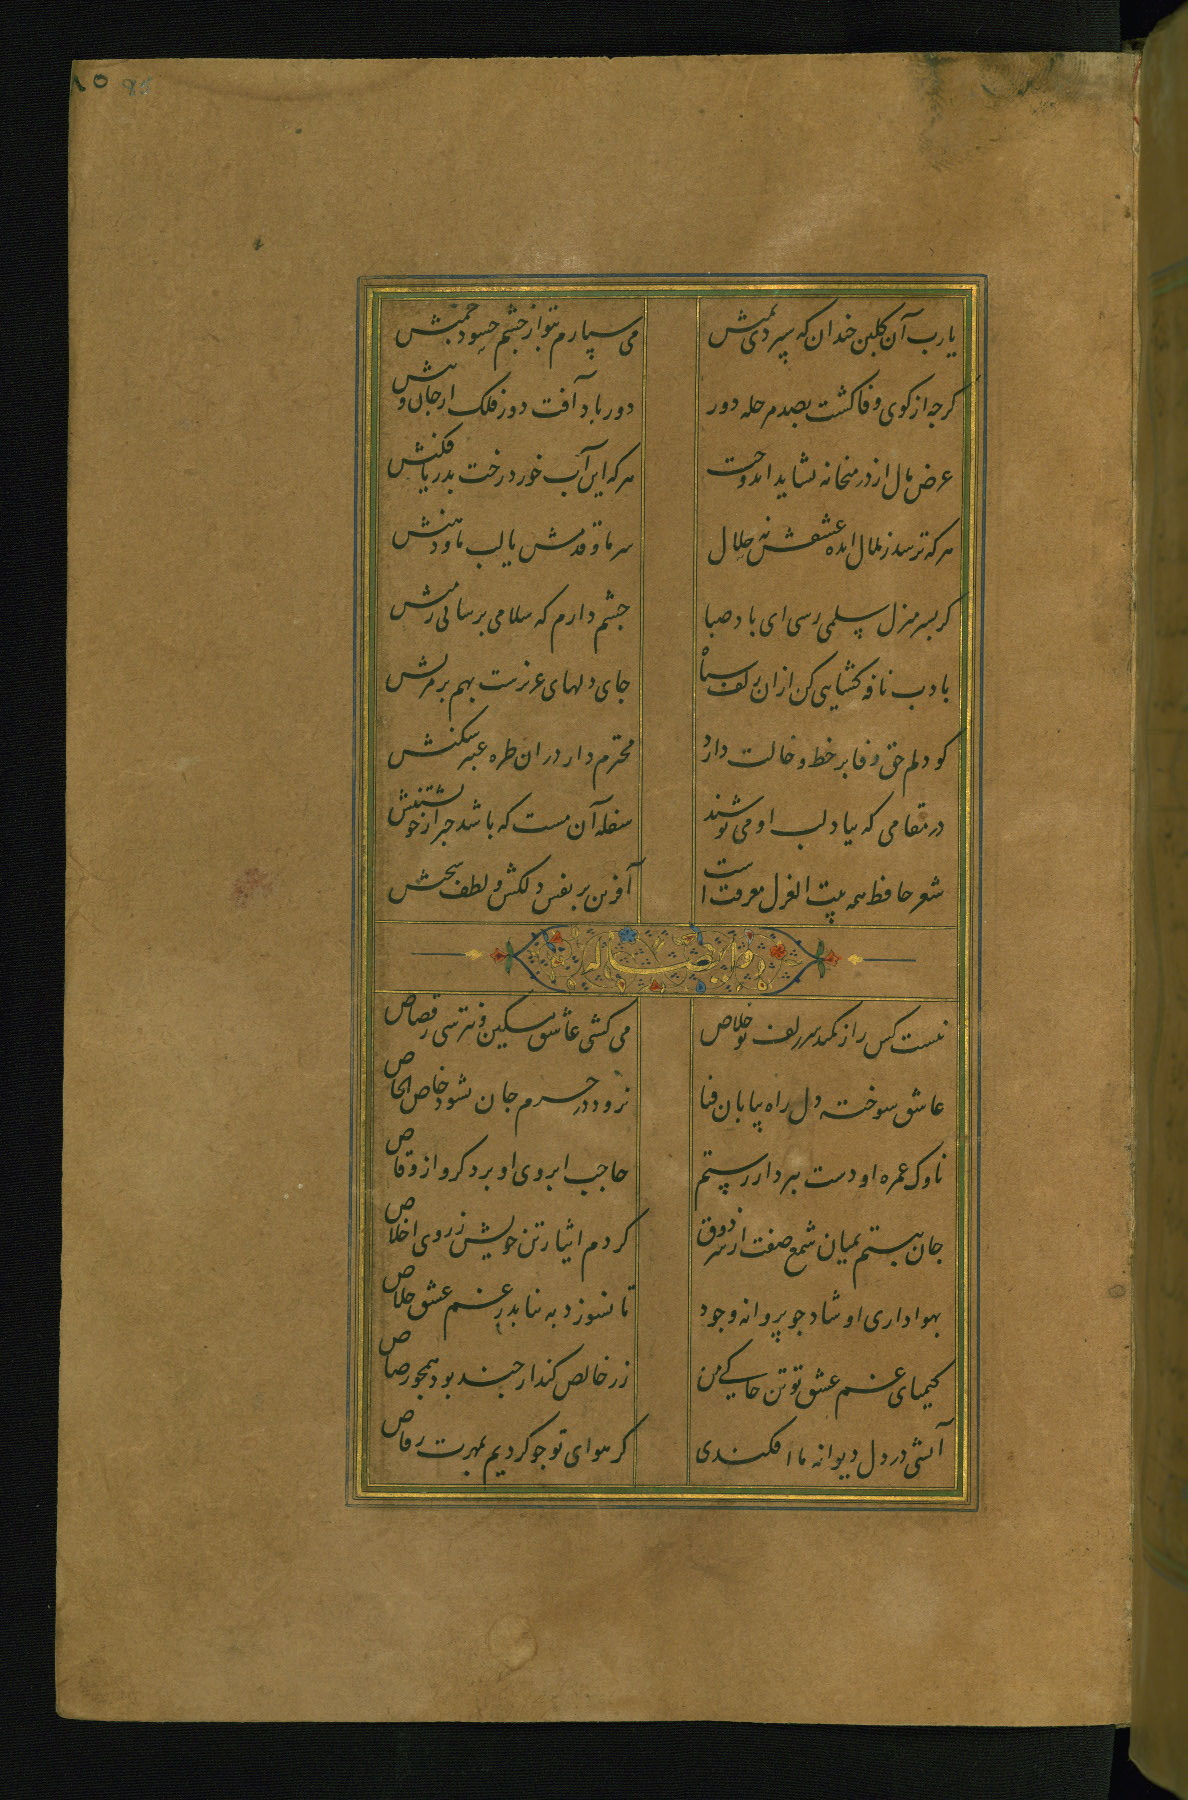 یارب آن کلبن خندان که سپردی بمنش می سپارم بتو از چشم حسود چمنش
کرچه از کوی وفا کشت بصد مرحله دور دور باد آفت دور فلک ار جان و تنش
عرض مال از در میخانه نشاید اندوخت هرکه این آب خورد رخت بدریا فکنش
هرکه ترسد ز ملال انده عشقش نه حلال سر ما و قدمش یا لب ما و دهنش
کر بسر منزل سلمی رسی ای باد صبا چشم دارم که سلامی برسانی ز منش
بادب نافه کشایی کن ازان زلف سیاه جای دلهای عزیزست بهم بر مزنش
کو دلم حق وفا بر خط و خالت دارد محترم دار در ان طره عنبر شکنش
در مقامی که بیاد لب او می نوشند سفله آن مست که باشد خبر از خویشتنش
شعر حافظ همه بیت الغزل معرفت است آفرین بر نفس دلکش و لطف سخنش
وله ایضا
نیست کس را ز کمند سر زلف تو خلاص می کشی عاشق مسکین و نترسی ز قصاص
عاشق سوخته دل راه بیابان فنا نرود در حرم جان نشود خاص الخاص
ناوک غمزه او دست ببرد از رستم حاجب ابروی او برد کرو از وقاص
جان ببستم بمیان شمع صفت از سر ذوق کردم ایثار تن خویش ز روی اخلاص
بهواداری او شاد چو پروانه وجود تا نسوزد به نیابد ز غم عشق خلاص
کیمیای غم عشق تو تن خاکی من زر خالص کند ار چند بود همچو رصاص
آتشی در دل دیوانه ما افکندی کر هوای تو چو کردیم بمهرت رقاص